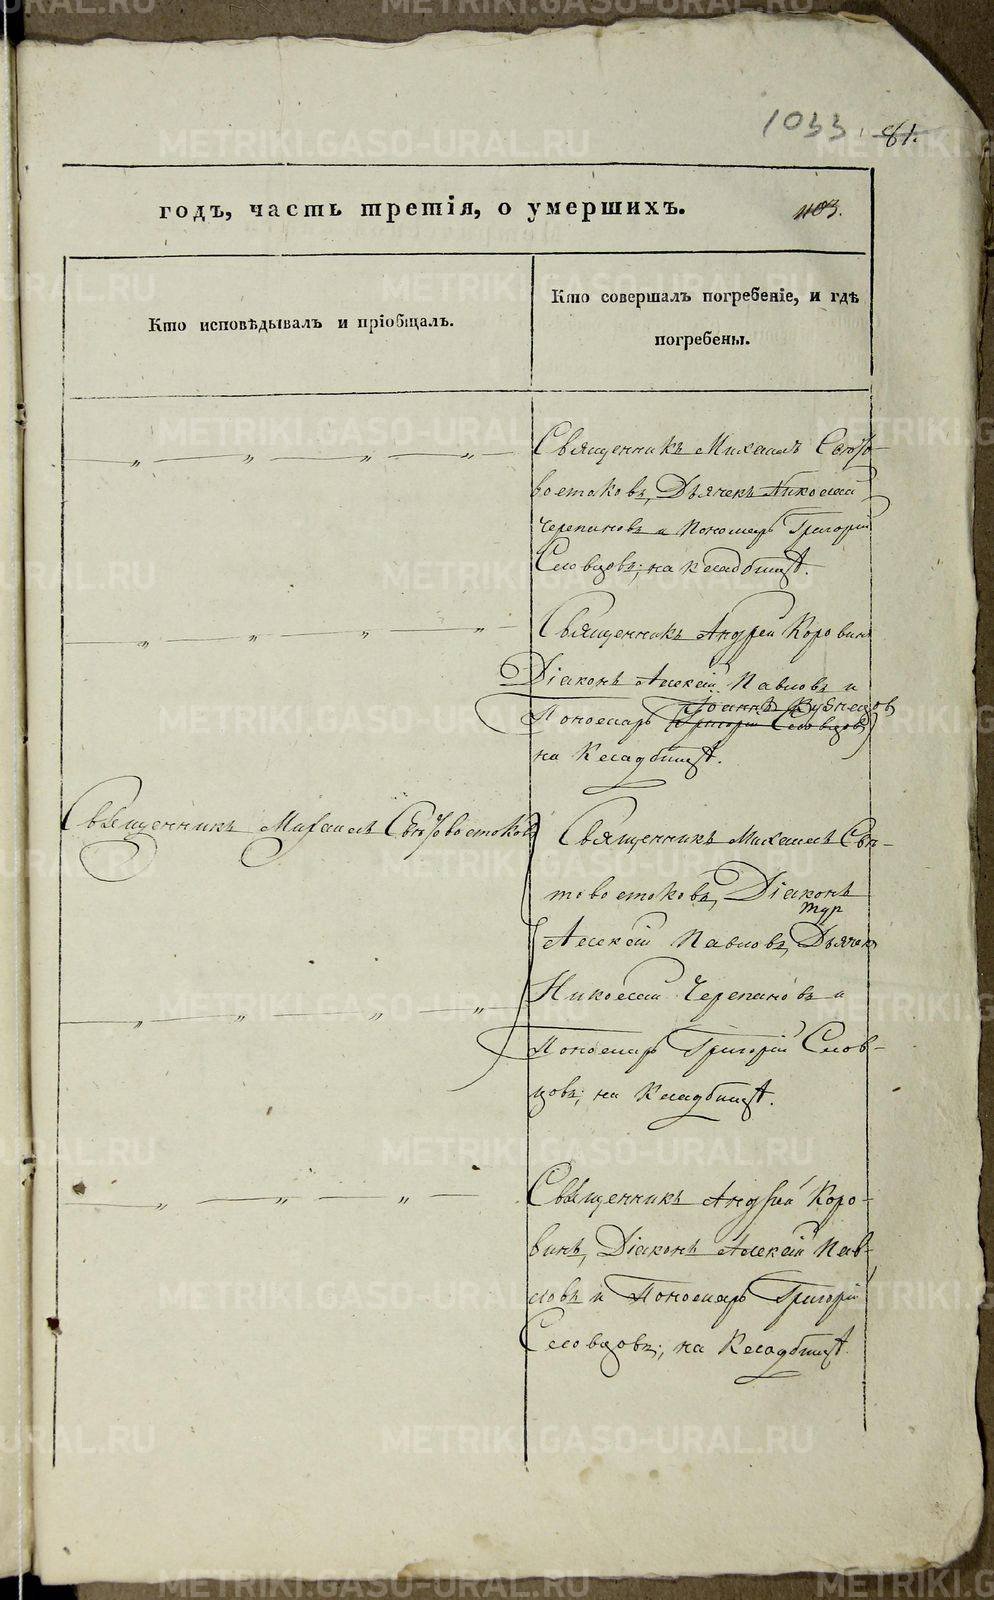 1033 81.
годъ, часть третія, о умершихъ.
Кто исповѣдывалъ и пріобщалъ.
Кто совершалъ погребеніе, и гдѣ
погребены.
Священникъ Михаилъ Свято-
востоковъ, Дьячекъ Николай
Черепановъ и Пономарь Григорій
Словцовъ; на Кладбищѣ.
Священникъ Андрей Коровинъ
Діаконъ Алексій Павловъ и
Іоаннъ Кузнецовъ
Пономарь Григорій Словцовъ
на Кладбищѣ.
Священникъ Михаилъ Святовостоковъ
Священникъ Михаилъ Свя-
товостоковъ, Діаконъ
Алексій Павловъ, Дьячекъ
Николай Черепановъ и
Пономарь Григорій Слов-
цовъ; на Кладбищѣ.
Священникъ Андрей Коро-
винъ, Діаконъ Алексій Пав-
ловъ и Пономарь Григорій
Словцовъ; на Кладбищѣ.
METRIKI.GASO-URAL.RU